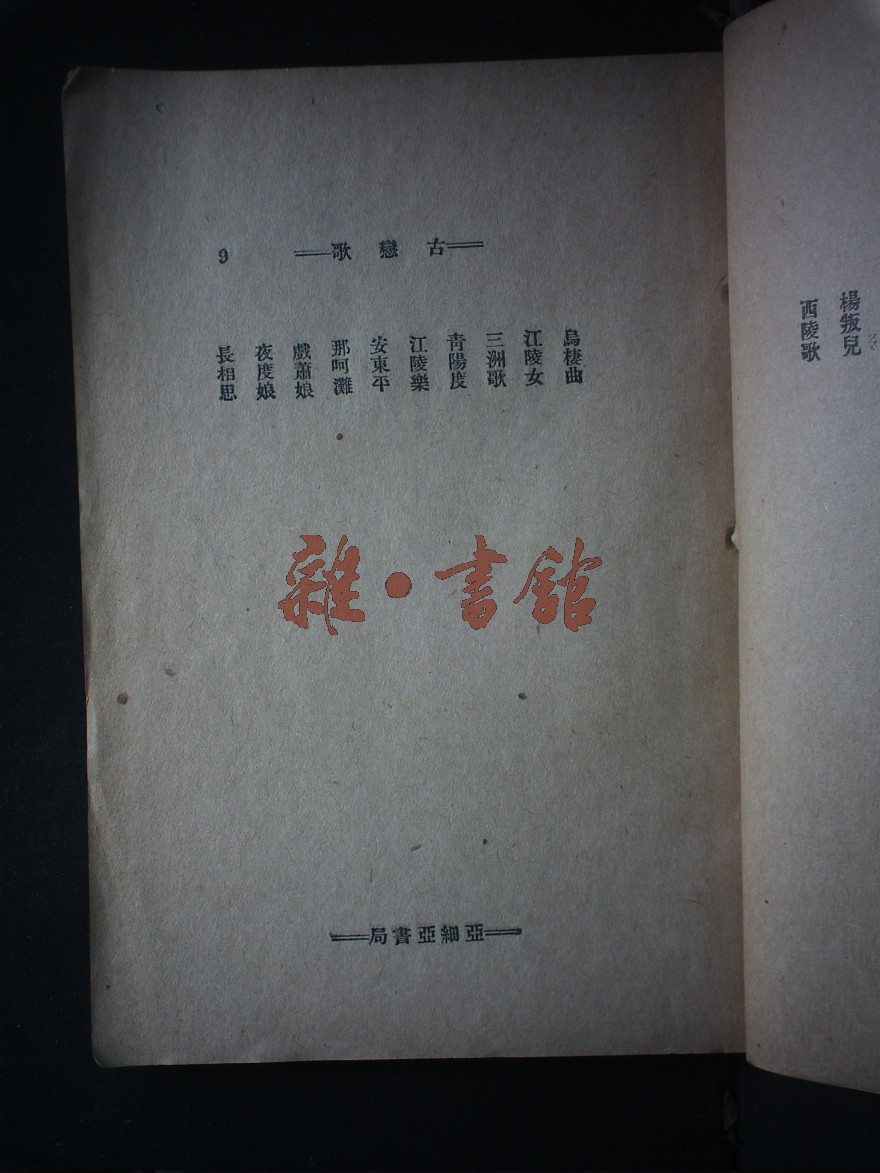 楊叛兒
西陵歌
古戀歌 9
烏棲曲
江陵女
三洲歌
青陽度
江陵樂
安東平
那呵灘
戲蕭娘
夜度娘
長相思
雜·書館
亞細亞書局